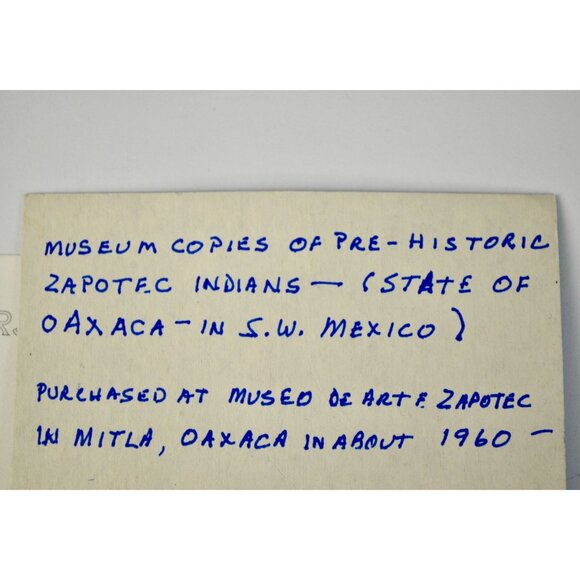 MUSEUM COPIES OF PRE-HISTORIC
ZAPOTEC INDIANS — (STATE OF
OAXACA — IN S.W. MEXICO)
PURCHASED AT MUSEO DE ARTE ZAPOTEC
IN MITLA, OAXACA IN ABOUT 1960 —
R.